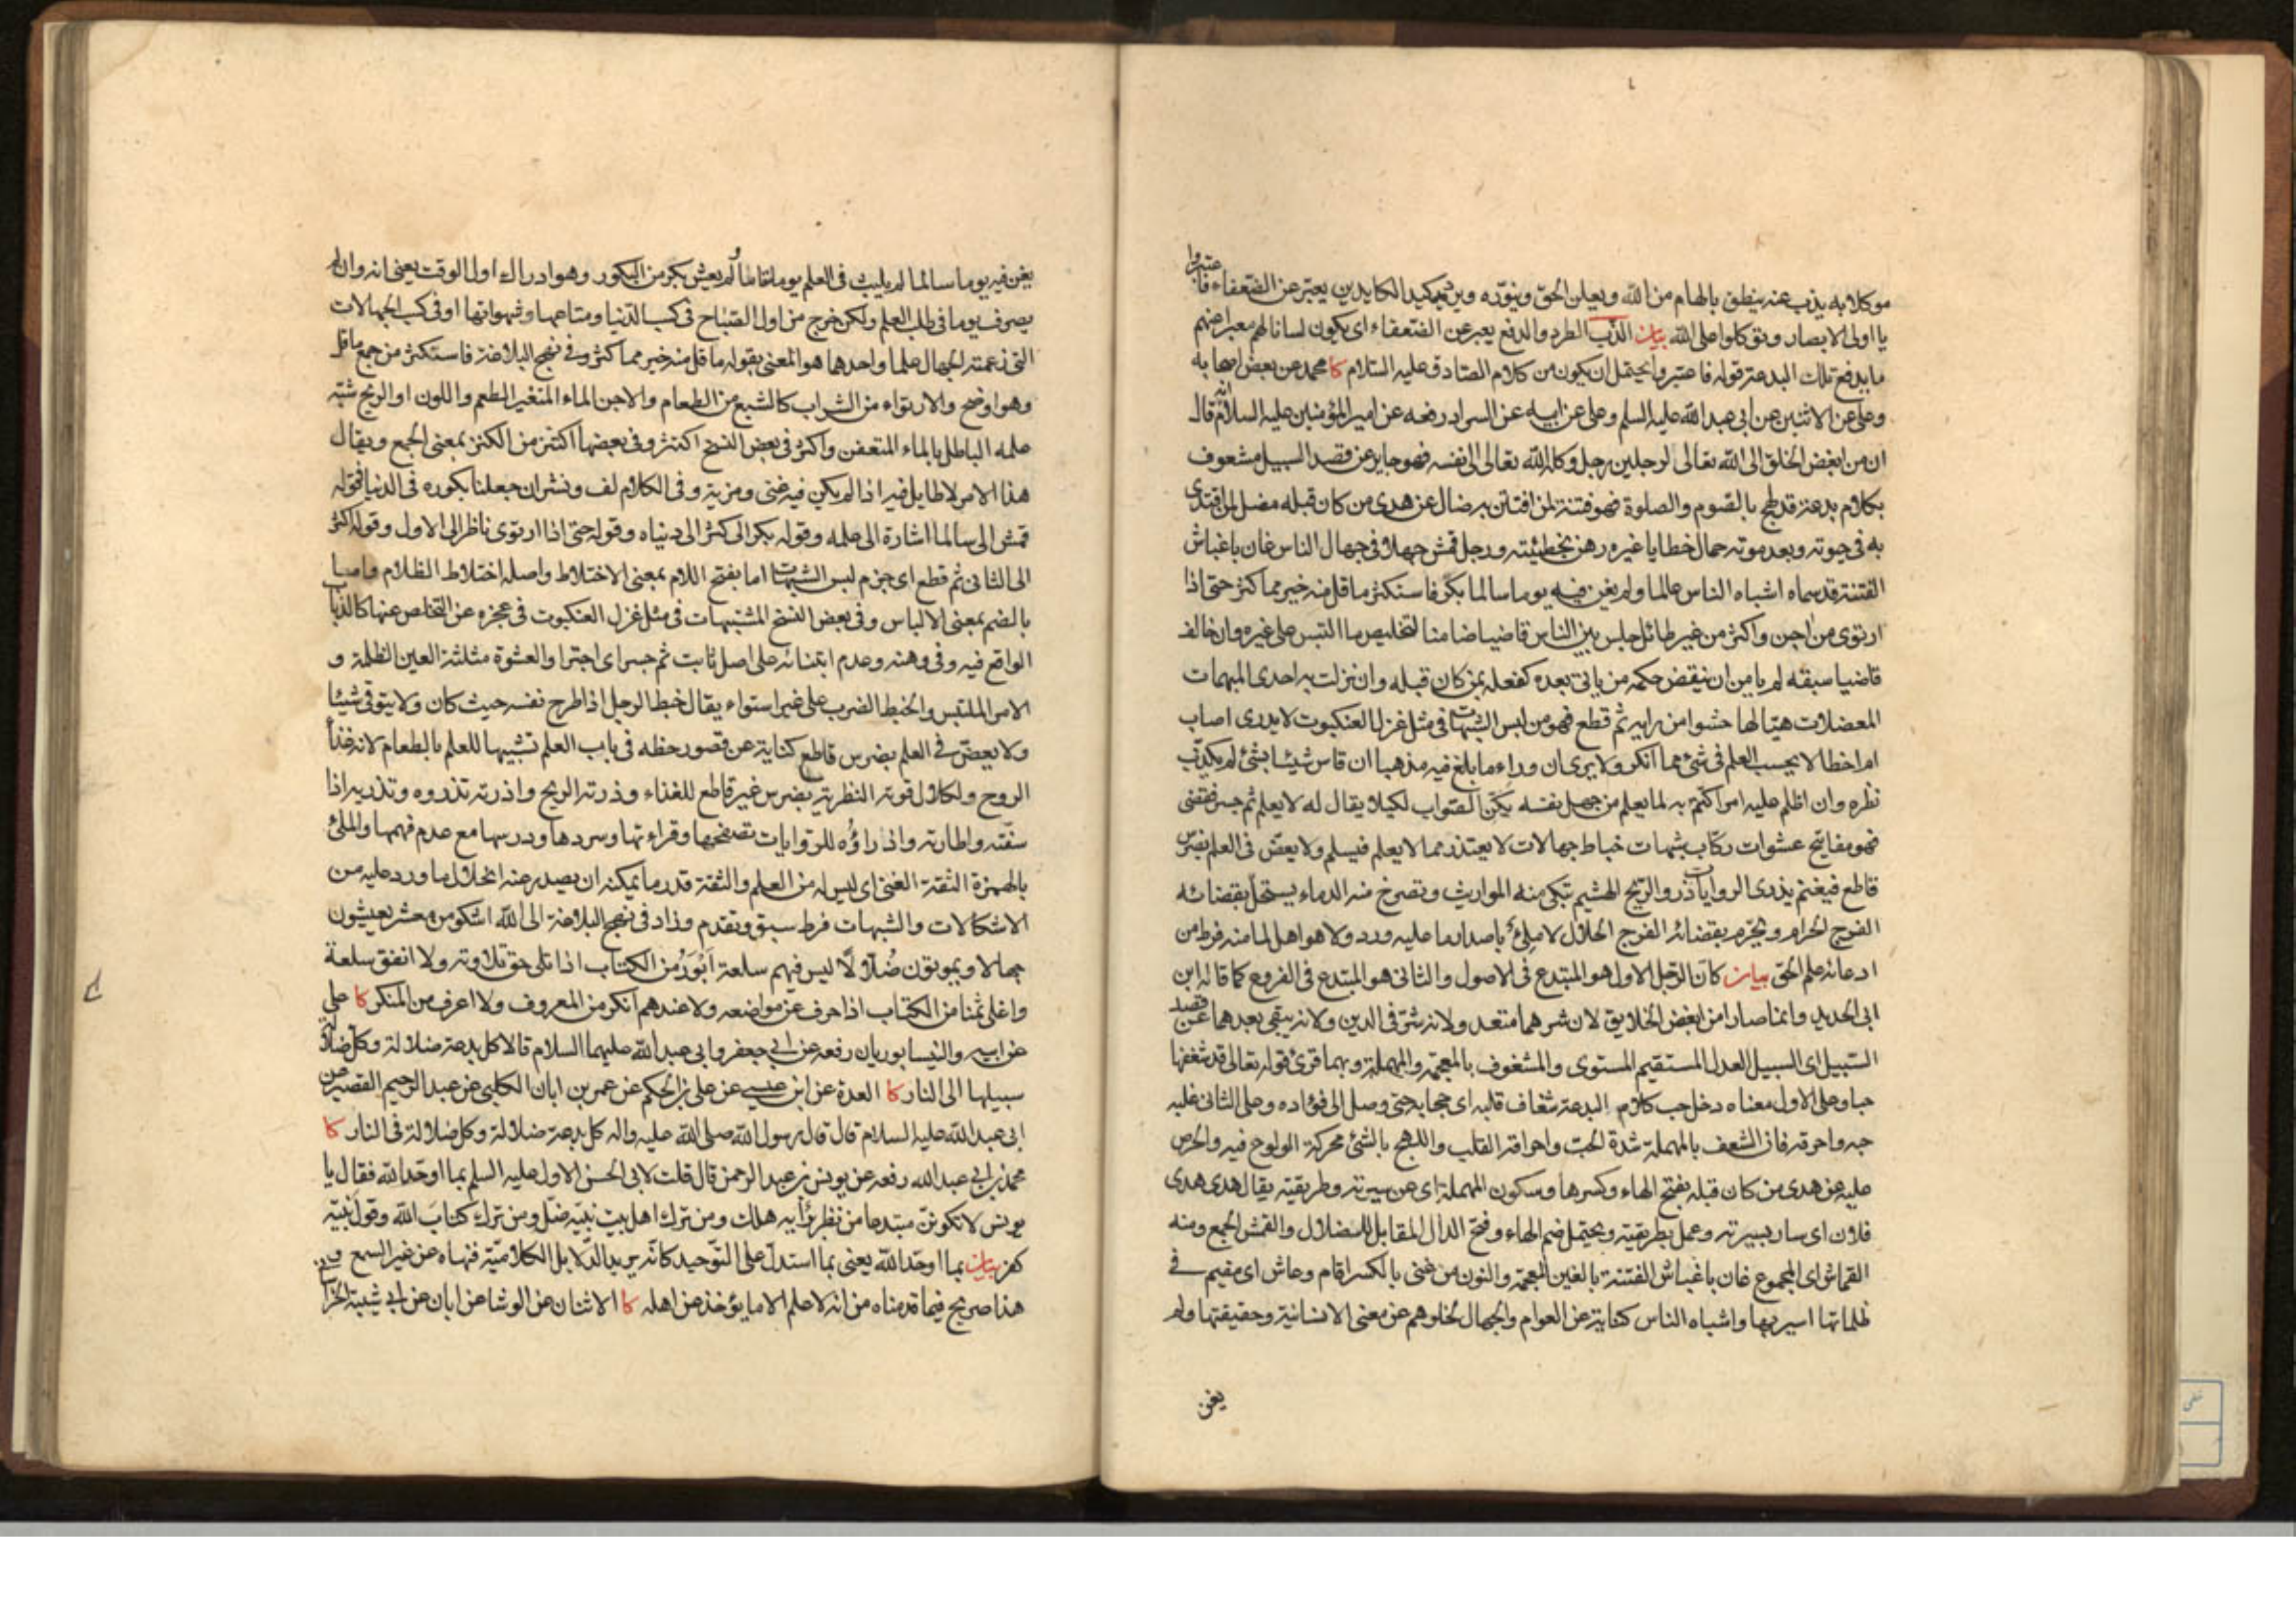 موكلا به يذب عنه ينطق بالهام من الله ويعلن الحق وينوره ويرد كيد الكايدين يعبر عن الضعفاء فاعتبروا
يا اولى الابصار وتوكلوا على الله بيان الذب الطرد والدفع يعبر عن الضعفاء اى يكون لسانا لهم معبرا عنهم
ما يدفع تلك البدعة قوله فاعتبروا يحتمل ان يكون من كلام الصادق عليه السلام كا محمد عن بعض اصحابه
وعلى عن الاثنين عن ابى عبد الله عليه السلم وعلى عن ابيه عن السراد رفعه عن امير المؤمنين عليه السلام انه قال
ان من ابغض الخلق الى الله تعالى لرجلين رجل وكله الله تعالى الى نفسه فهو جاير عن قصد السبيل مشعوف
بكلام بدعة قد لهج بالصوم والصلوة فهو فتنة لمن افتتن به ضال عن هدى من كان قبله مضل لمن اقتدى
به فى حيوته وبعد موته حمال خطايا غيره رهن بخطيئته ورجل قمش جهلا فى جهال الناس غان باغباش
الفتنة قد سماه اشباه الناس عالما ولم يغن فيه يوما سالما بكر فاستكثر ما قل منه خير مما كثر حتى اذا
ارتوى من اجن واكثر من غير طائل جلس بين الناس قاضيا ضامنا لتخليص ما التبس على غيره وان خالف
قاضيا سبقه لم يامن ان ينقض حكمه من ياتى بعده كفعله بمن كان قبله وان نزلت به احدى المبهمات
المعضلات هيا لها حشوا من رايه ثم قطع فهو من لبس الشبهات فى مثل غزل العنكبوت لا يدرى اصاب
ام اخطا لا يحسب العلم فى شئ مما انكر ولا يرى ان وراء ما بلغ فيه مذهبا ان قاس شيئا بشئ لم يكذب
نظره وان اظلم عليه امر اكتتم به لما يعلم من جهل نفسه لكيلا يقال له لا يعلم ثم جسر فقضى
فهو مفاتيح عشوات ركاب شبهات خباط جهالات لا يعتذر مما لا يعلم فيسلم ولا يعض فى العلم بضرس
قاطع فيغنم يذرى الروايات ذرو الريح الهشيم تبكى منه المواريث وتصرخ منه الدماء يستحل بقضائه
الفرج الحرام ويحرم بقضائه الفرج الحلال لا ملئ باصدار ما عليه ورد ولا هو اهل لما منه فرط من
ادعائه علم الحق بيان كان الرجل الاول هو المبتدع فى الاصول والثانى هو المبتدع فى الفروع كما قاله ابن
ابى الحديد وانما صارا من ابغض الخلايق لان شرهما متعد ولانه شر فى الدين ولانه يبقى بعدهما عن قصد
السبيل اى السبيل العدل المستقيم المستوى والمشغوف بالمعجمة والمهملة وبهما قرئ قوله تعالى قد شغفها
حبا وعلى الاول معناه دخل حب كلام البدعة شغاف قلبه اى حجابه حتى وصل الى فؤاده وعلى الثانى غلبه
حبه واحرقه فان الشعف بالمهملة شدة الحب واحراقه القلب واللهج بالشئ محركة الولوع فيه والحرص
عليه عن هدى من كان قبله بفتح الهاء وكسرها وسكون المهملة اى عن سيرته وطريقته يقال هدى هدى
فلان اى سار بسيرته وعمل بطريقته ويحتمل ضم الهاء وفتح الدال المقابل للضلال والقمش الجمع ومنه
القماش اى المجموع غان باغباش الفتنة بالغين المعجمة والنون من غنى بالكسر اقام وعاش اى مقيم فى
ظلماتها اسير بها واشباه الناس كناية عن العوام والجهال لخلوهم عن معنى الانسانية وحقيقتها ولم
يغن
يغن فيه يوما سالما لم يلبث فى العلم يوما تاما ولم يعش بكر من البكور وهو ادراك اول الوقت يعنى انه وان لم
يصرف يوما فى طلب العلم ولكن خرج من اول الصباح فى كسب الدنيا ومتاعها وشهواتها او فى كسب الجهالات
التى زعمته الجهال علما واحدهما هو المعنى بقوله ما قل منه خير مما كثر وفى نهج البلاغة فاستكثر من جمع ما قل
وهو اوضح والارتواء من الشراب كالشبع من الطعام والاجن الماء المتغير الطعم واللون او الريح شبه
علمه الباطل بالماء المتعفن واكثر فى بعض النسخ اكتنز وفى بعضها اكتنز من الكنز بمعنى الجمع ويقال
هذا الامر لا طايل فيه اذا لم يكن فيه غنى ومزية وفى الكلام لف ونشر ان جعلنا بكوره فى الدنيا فقوله
قمش الى سالما اشارة الى علمه وقوله بكر الى كثر الى دنياه وقوله حتى اذا ارتوى ناظر الى الاول وقوله اكثر
الى الثانى ثم قطع اى جزم لبس الشبهات اما بفتح اللام بمعنى الاختلاط واصله اختلاط الظلام واما
بالضم بمعنى الالباس وفى بعض النسخ المشتبهات فى مثل غزل العنكبوت فى عجزه عن التخلص عنها كالذباب
الواقع فيه وفى وهنه وعدم ابتنائه على اصل ثابت ثم جسر اى اجترا والعشوة مثلثة العين الظلمة و
الامر الملتبس والخبط الضرب على غير استواء يقال خبط الرجل اذا طرح نفسه حيث كان ولا يتوقى شيئا
ولا يعض فى العلم بضرس قاطع كناية عن قصور حظه فى باب العلم تشبيها للعلم بالطعام لانه غذاء
الروح ولكلال قوته النظرية بضرس غير قاطع للغذاء وذرته الريح واذرته تذروه وتذريه اذا
سفته واطارته واذراؤه للروايات تصفحها وقراءتها وسردها ودرسها مع عدم فهمها والملئ
بالهمزة الثقة الغنى اى ليس له من العلم والثقة قدر ما يمكنه ان يصدر عنه انحلال ما ورد عليه من
الاشكالات والشبهات فرط سبق وتقدم وزاد فى نهج البلاغة الى الله اشكو من معشر يعيشون
جهالا ويموتون ضلالا ليس فيهم سلعة ابور من الكتاب اذا تلى حق تلاوته ولا انفق سلعة
واغلى ثمنا من الكتاب اذا حرف عن مواضعه ولا عندهم انكر من المعروف ولا اعرف من المنكر كا على
عن ابيه والنيسابوريان رفعه عن ابى جعفر وابى عبد الله عليهما السلام قالا كل بدعة ضلالة وكل ضلالة
سبيلها الى النار كا العدة عن ابن عيسى عن على بن الحكم عن عمر بن ابان الكلبى عن عبد الرحيم القصير عن
ابى عبد الله عليه السلام قال قال رسول الله صلى الله عليه واله كل بدعة ضلالة وكل ضلالة فى النار كا
محمد بن ابى عبد الله رفعه عن يونس بن عبد الرحمن قال قلت لابى الحسن الاول عليه السلم بما اوحد الله فقال يا
يونس لا تكونن مبتدعا من نظر برأيه هلك ومن ترك اهل بيت نبيه ضل ومن ترك كتاب الله وقول نبيه
كفر بيان بما اوحد الله يعنى بما استدل على التوحيد كانه يريد الدلايل الكلامية فنهاه عن غير السمع و
هذا صريح فيما قدمناه من انه لا علم الا ما يؤخذ عن اهله كا الاثنان عن الوشا عن ابان عن ابى شيبة الخراسانى